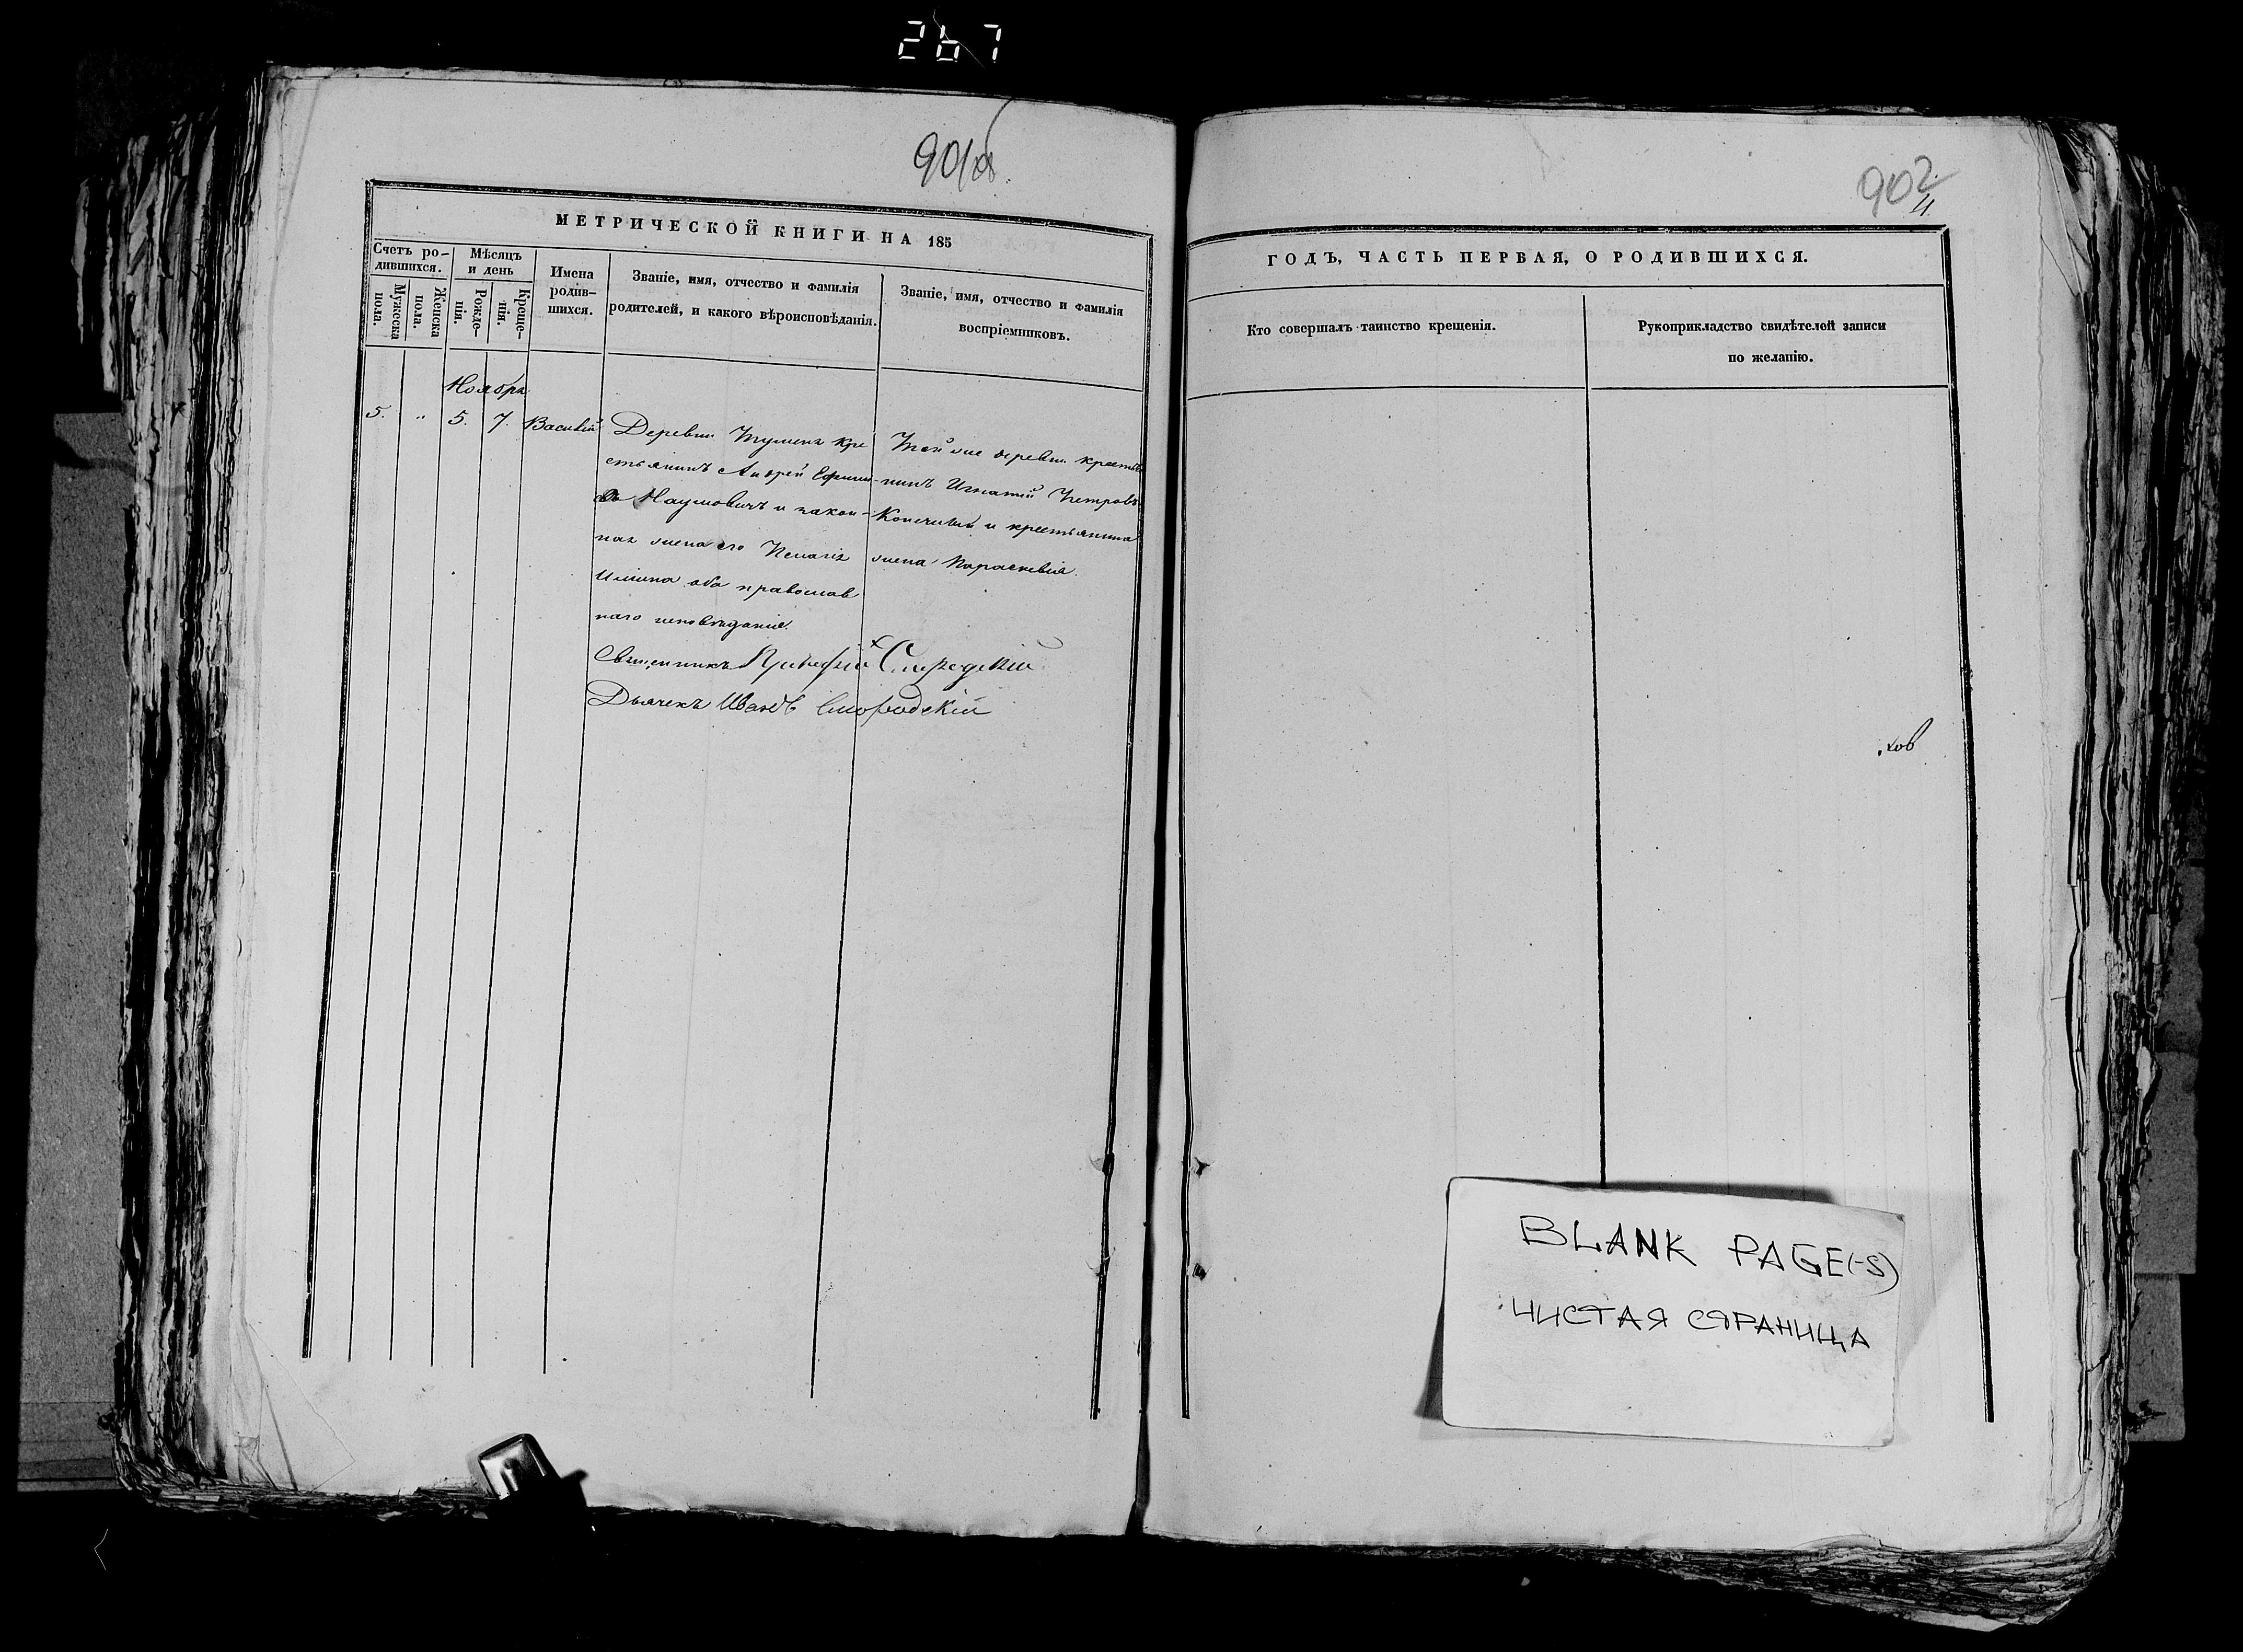 267
901об
МЕТРИЧЕСКОЙ КНИГИ НА 185
Счетъ ро-
дившихся.
Мужеска
пола.
Женска
пола.
Мѣсяцъ
и день
Рожде-
нія.
Креще-
нія.
Имена
родив-
шихся.
Званіе, имя, отчество и фамилія
родителей, и какого вѣроисповѣданія.
Званіе, имя, отчество и фамилія
воспріемниковъ.
Ноября
5. " 5. 7. Василій
Деревни кре
стьянинъ Андрей Ефимо
въ Наумовичъ и закон-
ная жена его Пелагія
оба православ
наго исповѣданія.
Той же деревни крестья
нинъ Игнатій Петровъ
и крестьянина
жена Параскевія.
Священникъ
Дьячекъ Иванъ Смородскій
902
ГОДЪ, ЧАСТЬ ПЕРВАЯ, О РОДИВШИХСЯ.
Кто совершалъ таинство крещенія.
Рукоприкладство свидѣтелей записи
по желанію.
ков
BLANK PAGE(-S)
ЧИСТАЯ СТРАНИЦА